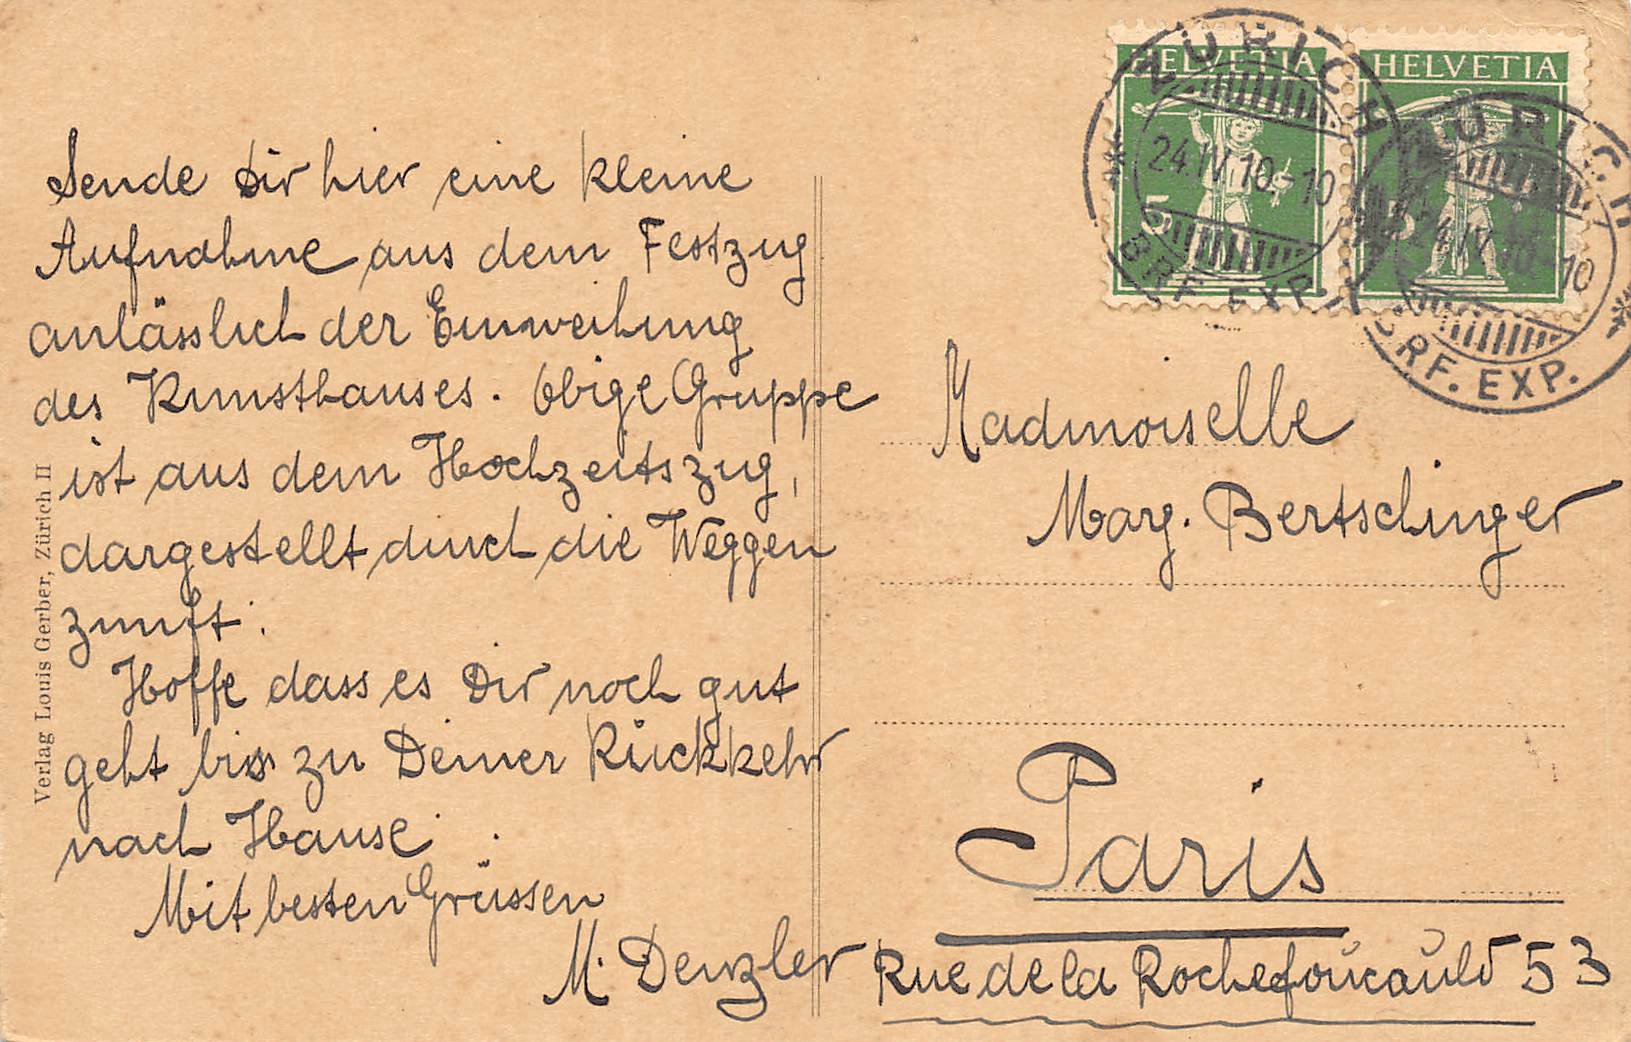 Sende Dir hier eine kleine
Aufnahme aus dem Festzug
anlässlich der Einweihung
des Kunsthauses. Obige Gruppe
ist aus dem Hochzeitszug,
dargestellt durch die Weggen
zunft.
Hoffe dass es Dir noch gut
geht bis zu Deiner Rückkehr
nach Hause.
Mit besten Grüssen
M. Denzler
Verlag Louis Gerber, Zürich II
HELVETIA
5
HELVETIA
5
ZÜRICH
24.IV.10.-10
BRF. EXP.
ZÜRICH
24.IV.10.-10
BRF. EXP.
Mademoiselle
Marg. Bertschinger
Paris
Rue de la Rochefoucauld 53